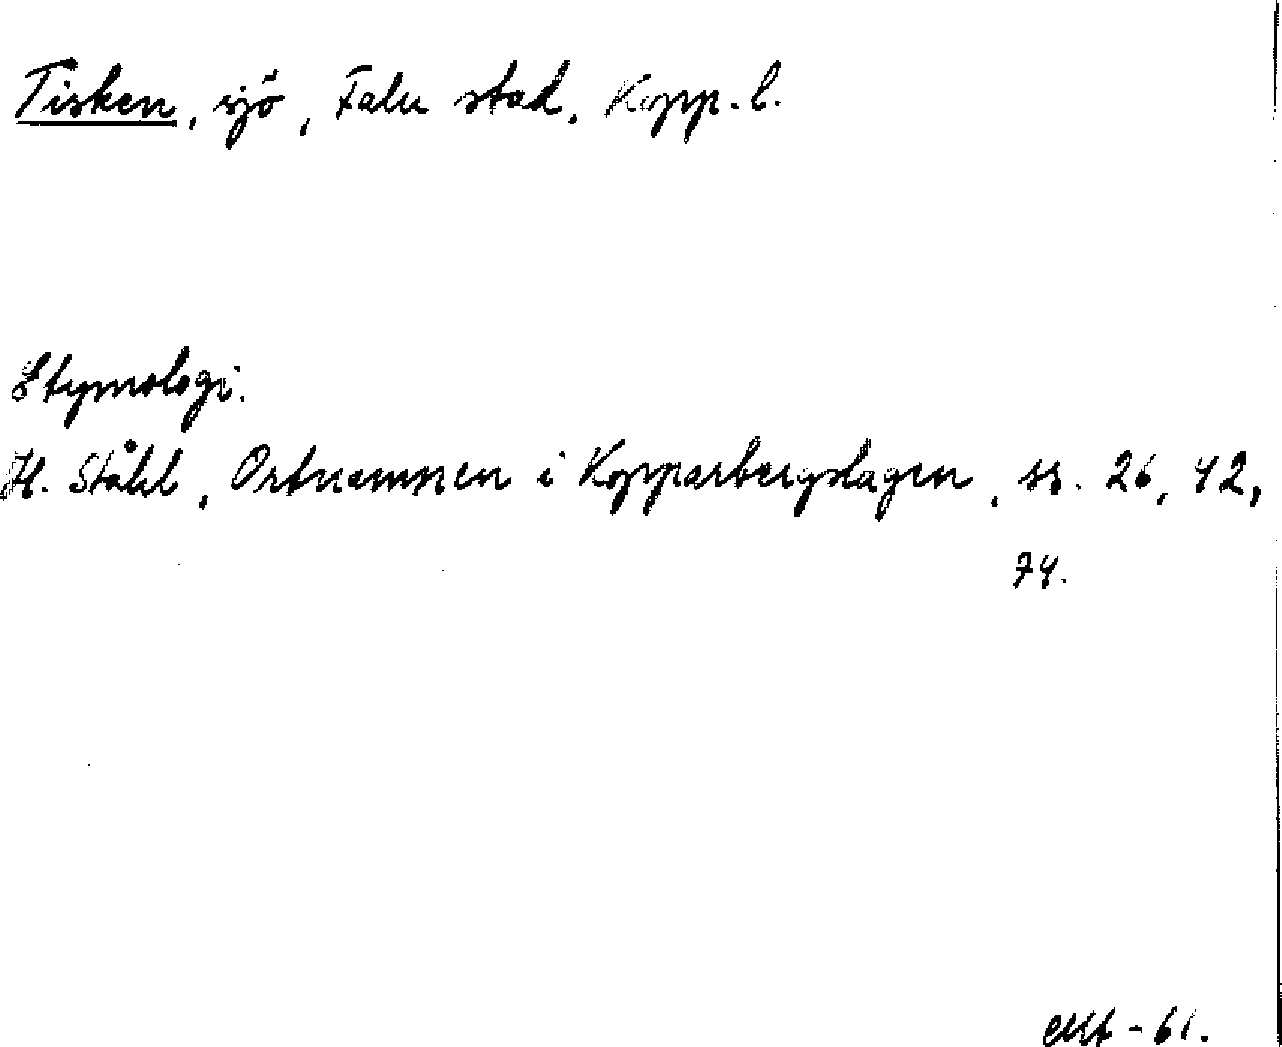 Tisken, sjö, Falu stad, Kopp. l.
Etymologi.
H. Ståhl, Ortnamnen i Kopparbergslagen, ss. 26, 42,
74.
-61.